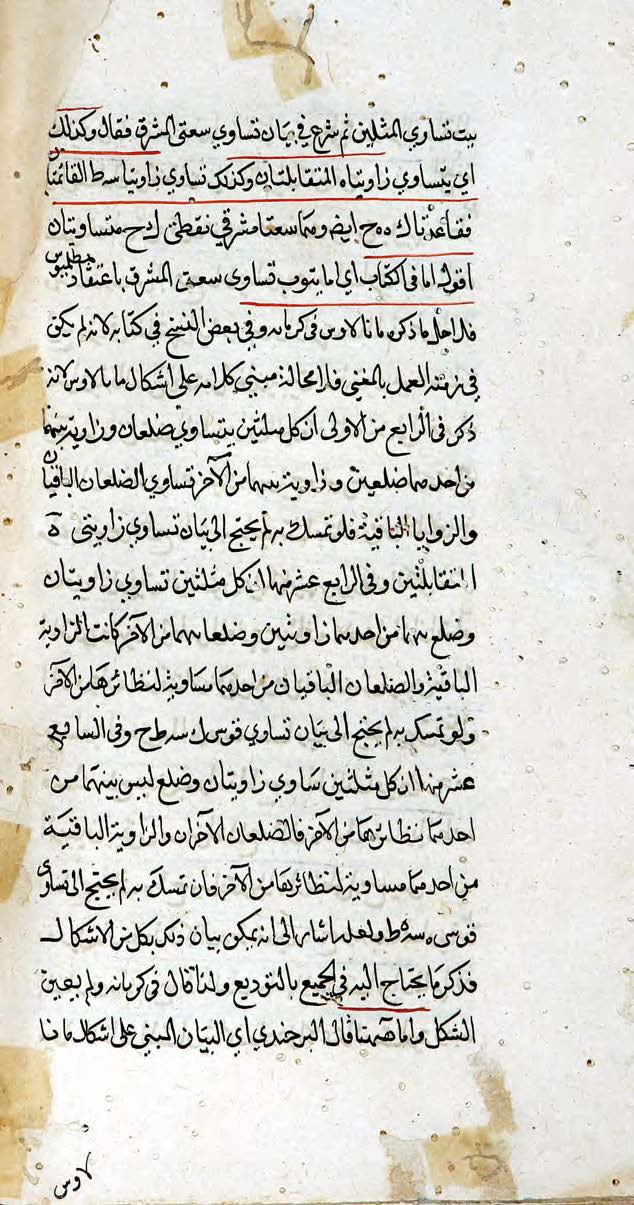 بيت تساوي المثلين ثم شرع في بيان تساوي سعتى المشرق فقال وكذلك
اى يتساوي زاويتاه المتقابلتان وكذلك تساوي زاويتا سه ط القائمتا
فقاعدتاك ه ح ايض وهما سعتا مشرقي نقطتى ك ح متساويتان
اقول اما في الكتاب اى اما بثبوت تساوى سعتى المشرق باعتقاد بطلميوس
فلاجل ما ذكره مانالاوس في كرياته وفي بعض النسخ في كتابه لانه لم يكن
في زمنه العمل بالمغني فلا محالة مبنى كلامه على اشكال مانالاوس لانه
ذكر في الرابع من الاولى ان كل مثلثين يتساوي ضلعان وزاوية بينهما
من احدهما ضلعين وزاوية بينهما من الآخر تساوي الضلعان الباقيان
والزوايا الباقية فلو تمسك به لم يحتج الى بيان تساوي زاويتى ه
المتقابلتين وفي الرابع عشر منها ان كل مثلثين تساوي زاويتان
وضلع بينهما من احدهما زاويتين وضلعا بينهما من الآخر كانت الزاوية
الباقية والضلعان الباقيان من احدهما مساوية لنظائرها من الآخر
ولو تمسك به لم يحتج الى بيان تساوي قوس ك سه ط ح وفي السابع
عشر منها ان كل مثلثين تساوي زاويتان وضلع ليس بينهما من
احدهما نظائرهما من الآخر فالضلعان الآخران والزاوية الباقية
من احدهما مساوية لنظائرها من الآخر فان تمسك به لم يحتج الى تساوي
قوسى ه سه ه ط ولعله اشار الى انه يمكن بيان ذلك بكل من الاشكال
فذكر ما يحتاج اليه في الجميع بالتوديع ولذا قال في كرياته ولم يعين
الشكل واما ههنا قال البرجندي اى البيان المبني على اشكال مانا
لاوس